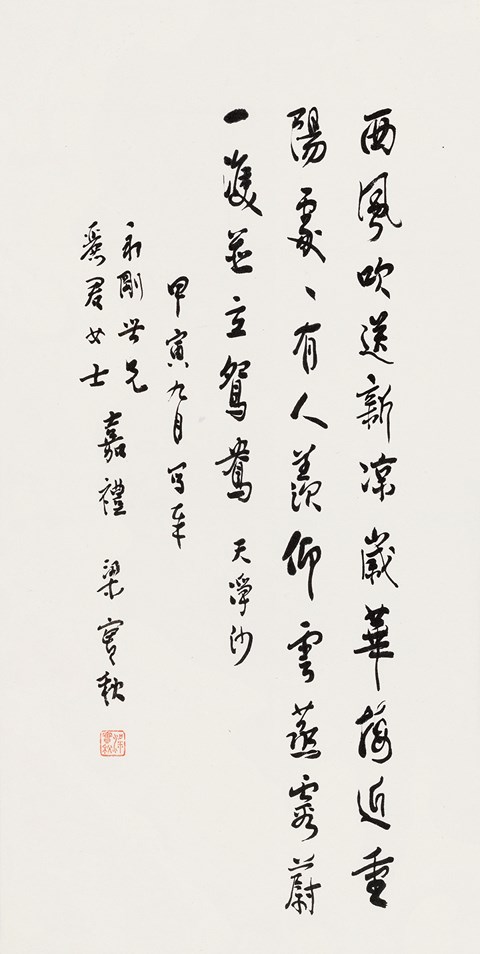 西風吹送新涼歲華近重
陽處々有人羨仰雲蒸霞蔚
一雙並立鴛鴦 天淨沙
甲寅九月寫奉
剛世兄
君女士
嘉禮 梁實秋